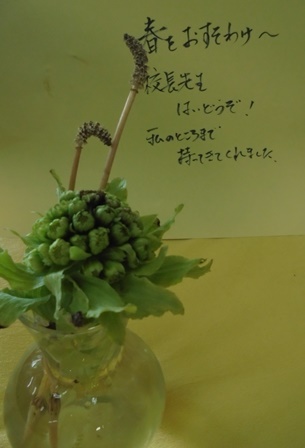 春をおすそわけ～
校長先生
はいどうぞ!
私のところまで
持ってきてくれました。